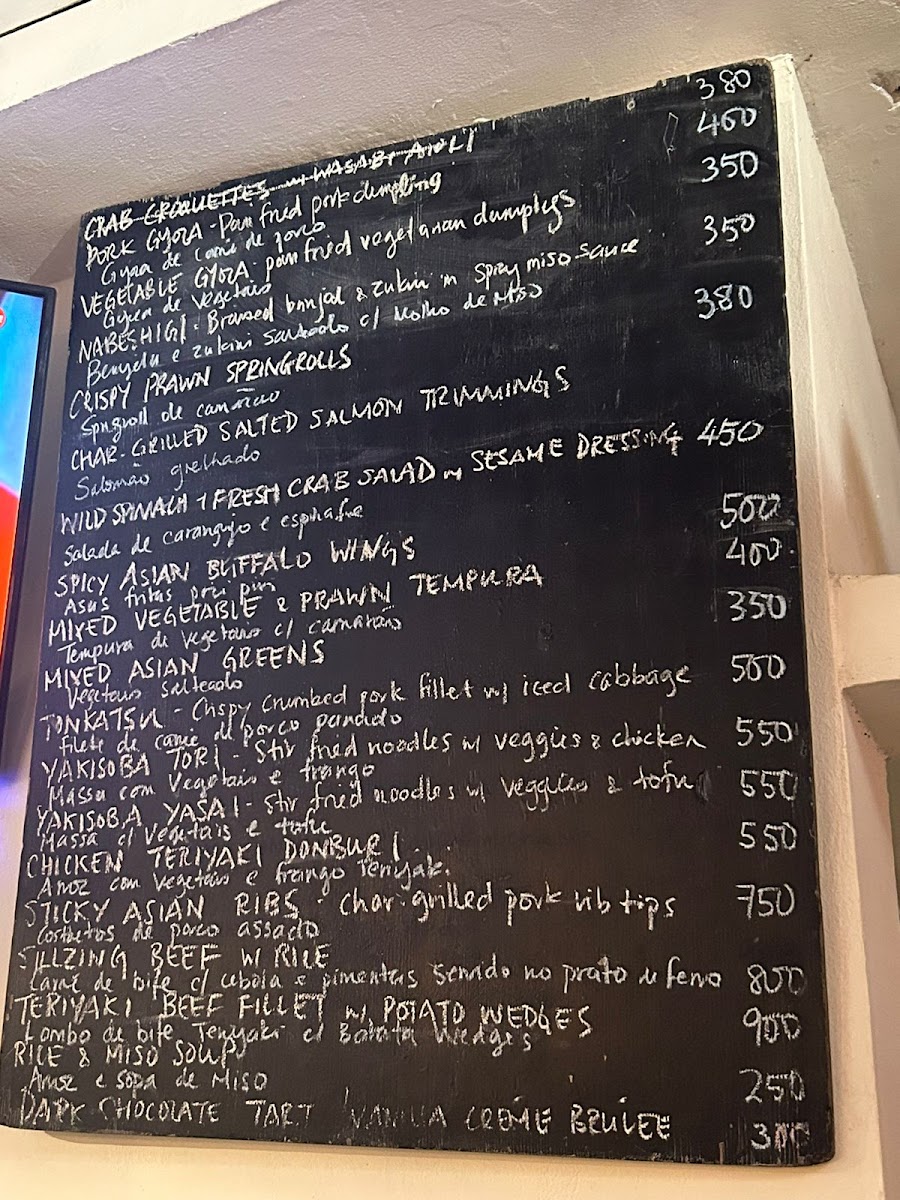 CRAB CROQUETTES w WASABI AIOLI 380
PORK GYOZA - Pan fried pork dumpling 460
Gyoza de carne de porco
VEGETABLE GYOZA. pan fried vegetarian dumplings 350
Gyoza de vegetais
NABESHIGI - Braised brinjal & zukini in spicy miso sauce 350
Benjela e zukini salteado c/ Molho de Miso
CRISPY PRAWN SPRINGROLLS 380
Springroll de camarao
CHAR-GRILLED SALTED SALMON TRIMMINGS
Salomão grelhado
WILD SPINACH + FRESH CRAB SALAD w SESAME DRESSING 450
Salada de carangujo e espinafre
SPICY ASIAN BUFFALO WINGS 500
Asas fritas piri piri
MIXED VEGETABLE & PRAWN TEMPURA 400
Tempura de vegetais c/ camarão
MIXED ASIAN GREENS 350
Vegetais salteado
TONKATSU - Crispy crumbed pork fillet w/ iced cabbage 500
filete de carne de porco panduto
YAKISOBA TORI - Stir fried noodles w veggies & chicken 550
Massa com vegetais e frango
YAKISOBA YASAI - Stir fried noodles w/ veggies & tofu 550
Massa c/ vegetais e tofu
CHICKEN TERIYAKI DONBURI 550
Arroz com vegetais e frango Teriyaki.
STICKY ASIAN RIBS - Char-grilled pork rib tips 750
Costeletas de porco assado
SILLZING BEEF W RICE
Carne de bife c/ cebola e pimentas servido no prato de ferro 800
TERIYAKI BEEF FILLET w/ POTATO WEDGES 900
Lombo de bife Teriyaki c/ Batata Wedges
RICE & MISO SOUP
Arroz e sopa de Miso 250
DARK CHOCOLATE TART VANILLA CREME BRULEE 300